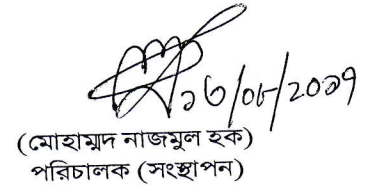 ১৩/০৮/২০১৭
(মোহাম্মদ নাজমুল হক)
পরিচালক (সংস্থাপন)